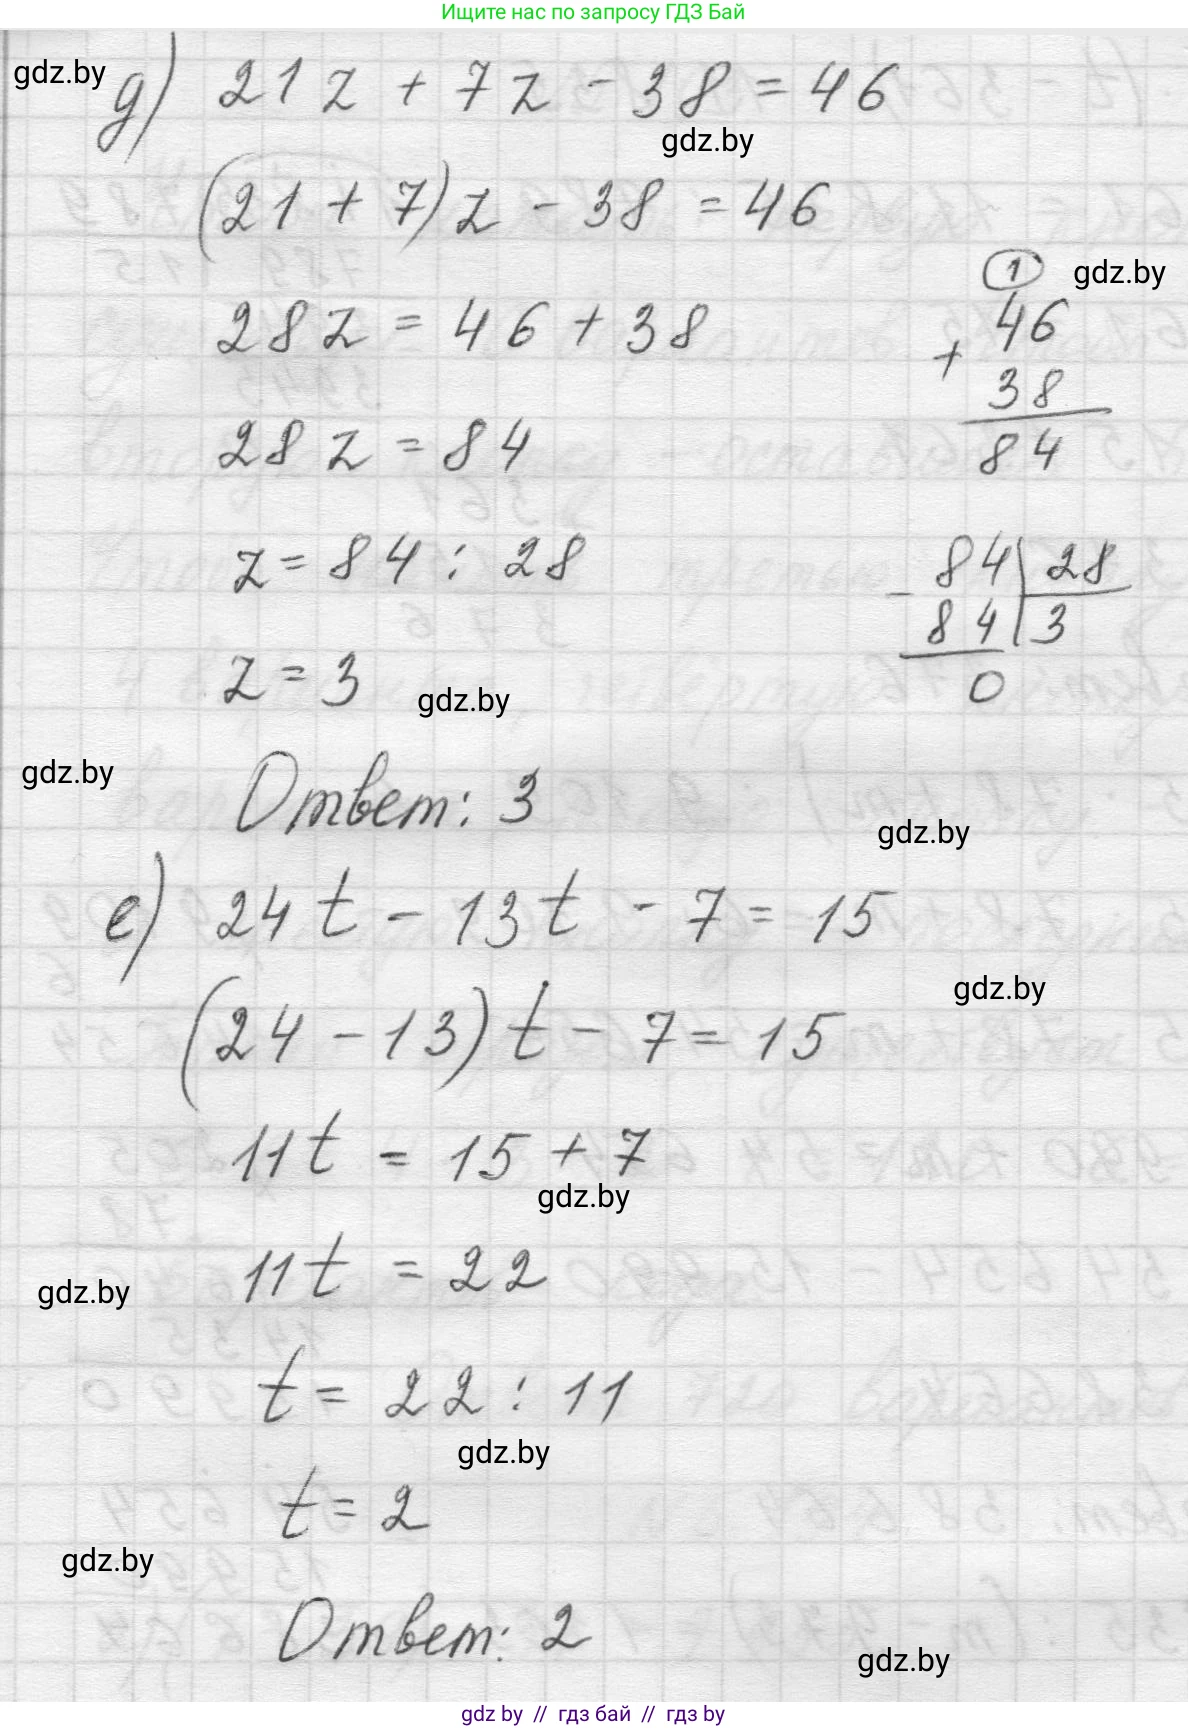 Ищите нас по запросу ГДЗ Бай
gdz.by
д) 21z + 7z - 38 = 46
gdz.by
(21 + 7)z - 38 = 46
1
gdz.by
28z = 46 + 38
46
+
38
84
28z = 84
z = 84 : 28
- 84 | 28
84 | 3
0
z = 3
gdz.by
gdz.by
Ответ: 3
gdz.by
е) 24t - 13t - 7 = 15
gdz.by
(24 - 13)t - 7 = 15
11t = 15 + 7
gdz.by
11t = 22
gdz.by
t = 22 : 11
gdz.by
t = 2
gdz.by
Ответ: 2
gdz.by
gdz by // гдз бай // гдз by